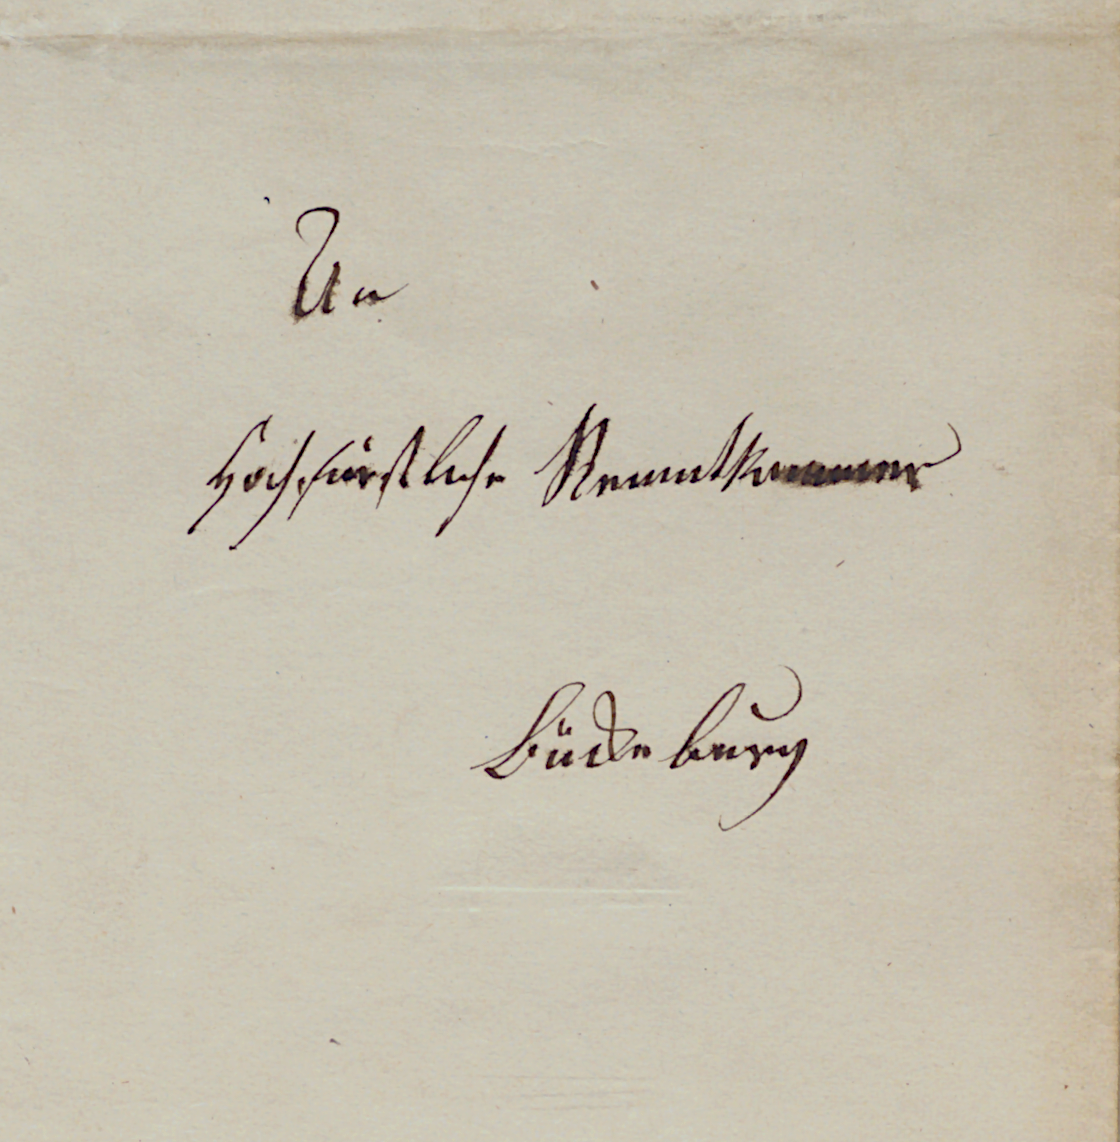 An
Hochfürstliche Renntkammer
Bückeburg